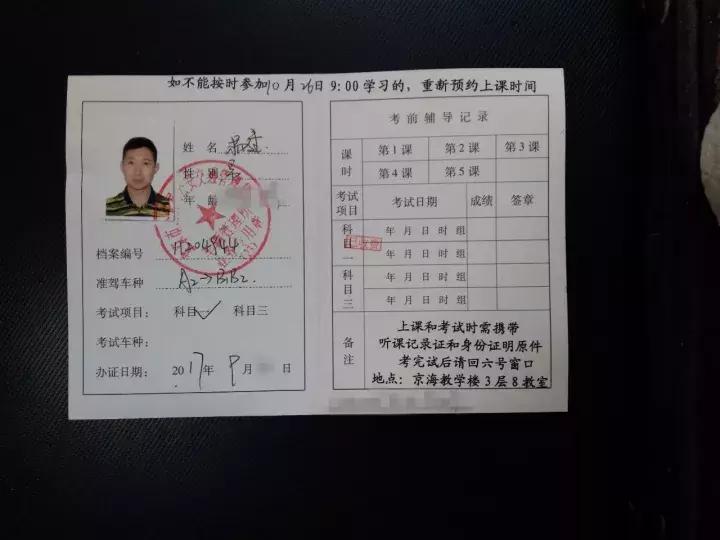 如不能按时参加10月26日9:00学习的，重新预约上课时间
姓名
性别 男
年龄
档案编号 11204944
准驾车种 A2→B1B2.
考试项目： 科目一✓ 科目三
考试车种：
办证日期： 2017年9月 日
考前辅导记录
课时 第1课 第2课 第3课
第4课 第5课
考试项目 考试日期 成绩 签章
科目一 年月日时组
已收费
年月日时组
科目三 年月日时组
年月日时组
备注
上课和考试时需携带
听课记录证和身份证明原件
考完试后请回六号窗口
地点：京海教学楼3层8教室